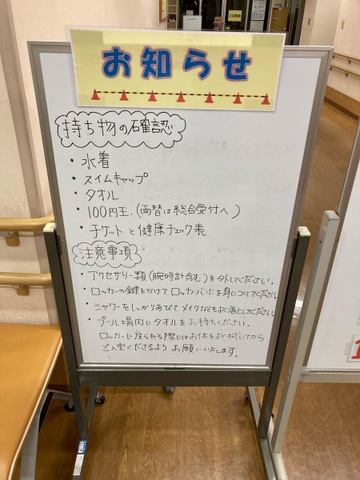 お知らせ
持ち物の確認
・水着
・スイムキャップ
・タオル
・100円玉.(両替は総合受付へ)
・チケットと健康チェック表
注意事項
・アクセサリー類(腕時計含む)を外してください。
・ロッカーの鍵をかけてロッカーバンドを身につけてください
・シャワーをしっかりあびてメイクなどもお落としください
・プール場内にタオルをお持ちください。
ロッカーに戻られる際にはお体をよくふいてから
ご入室くださるようお願いいたします。